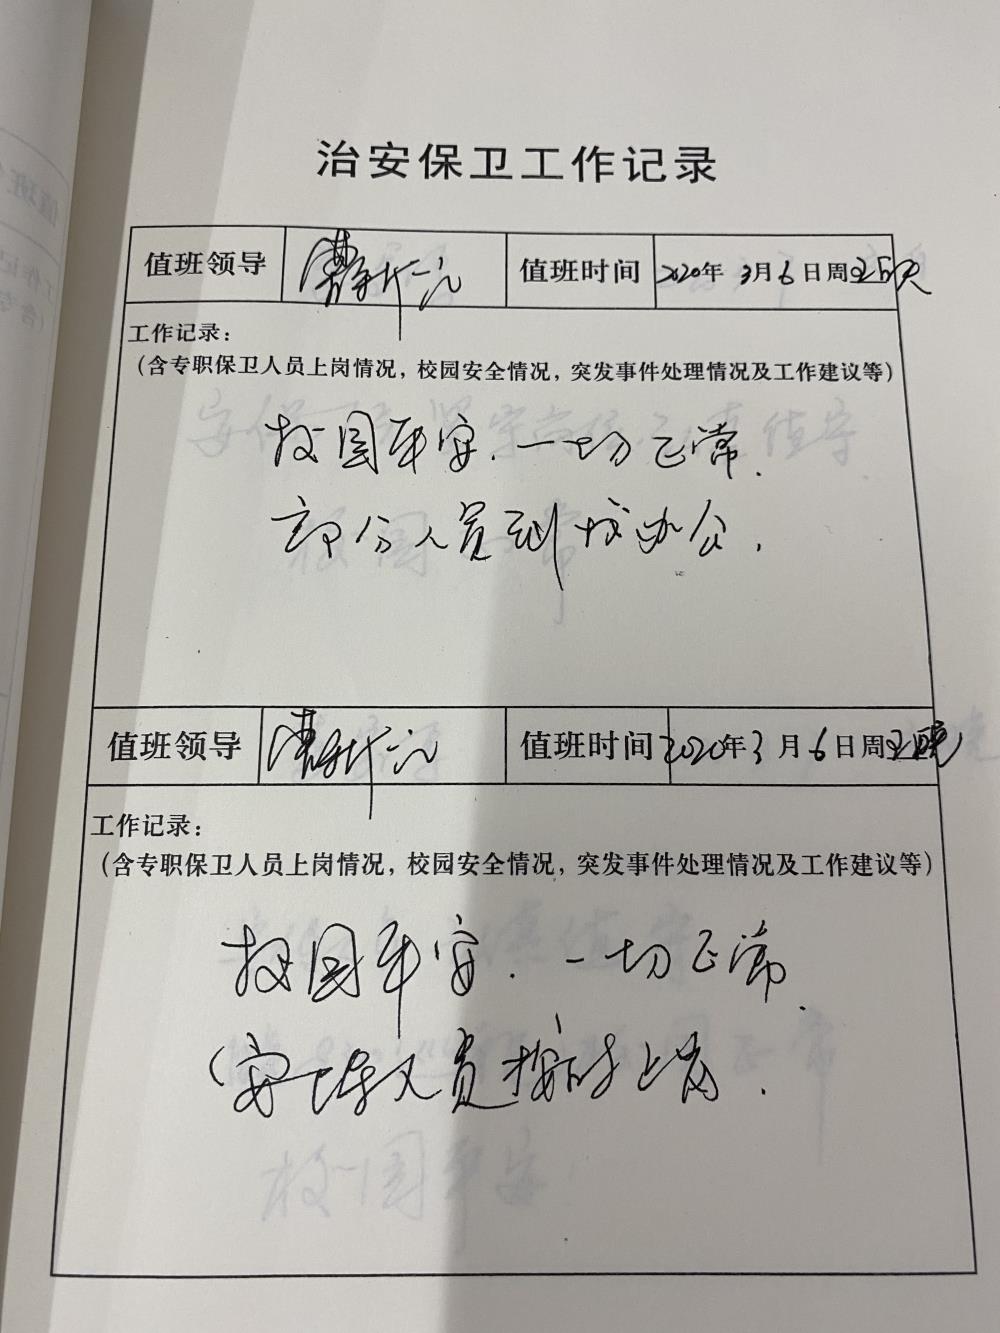 治安保卫工作记录
值班领导 值班时间 2020年 3月6日周五白天
工作记录：
（含专职保卫人员上岗情况，校园安全情况，突发事件处理情况及工作建议等）
校园平安.一切正常.
部分人员到校办公.
值班领导 值班时间 2020年3月6日周五晚
工作记录：
（含专职保卫人员上岗情况，校园安全情况，突发事件处理情况及工作建议等）
校园平安.一切正常.
安保人员按时上岗.